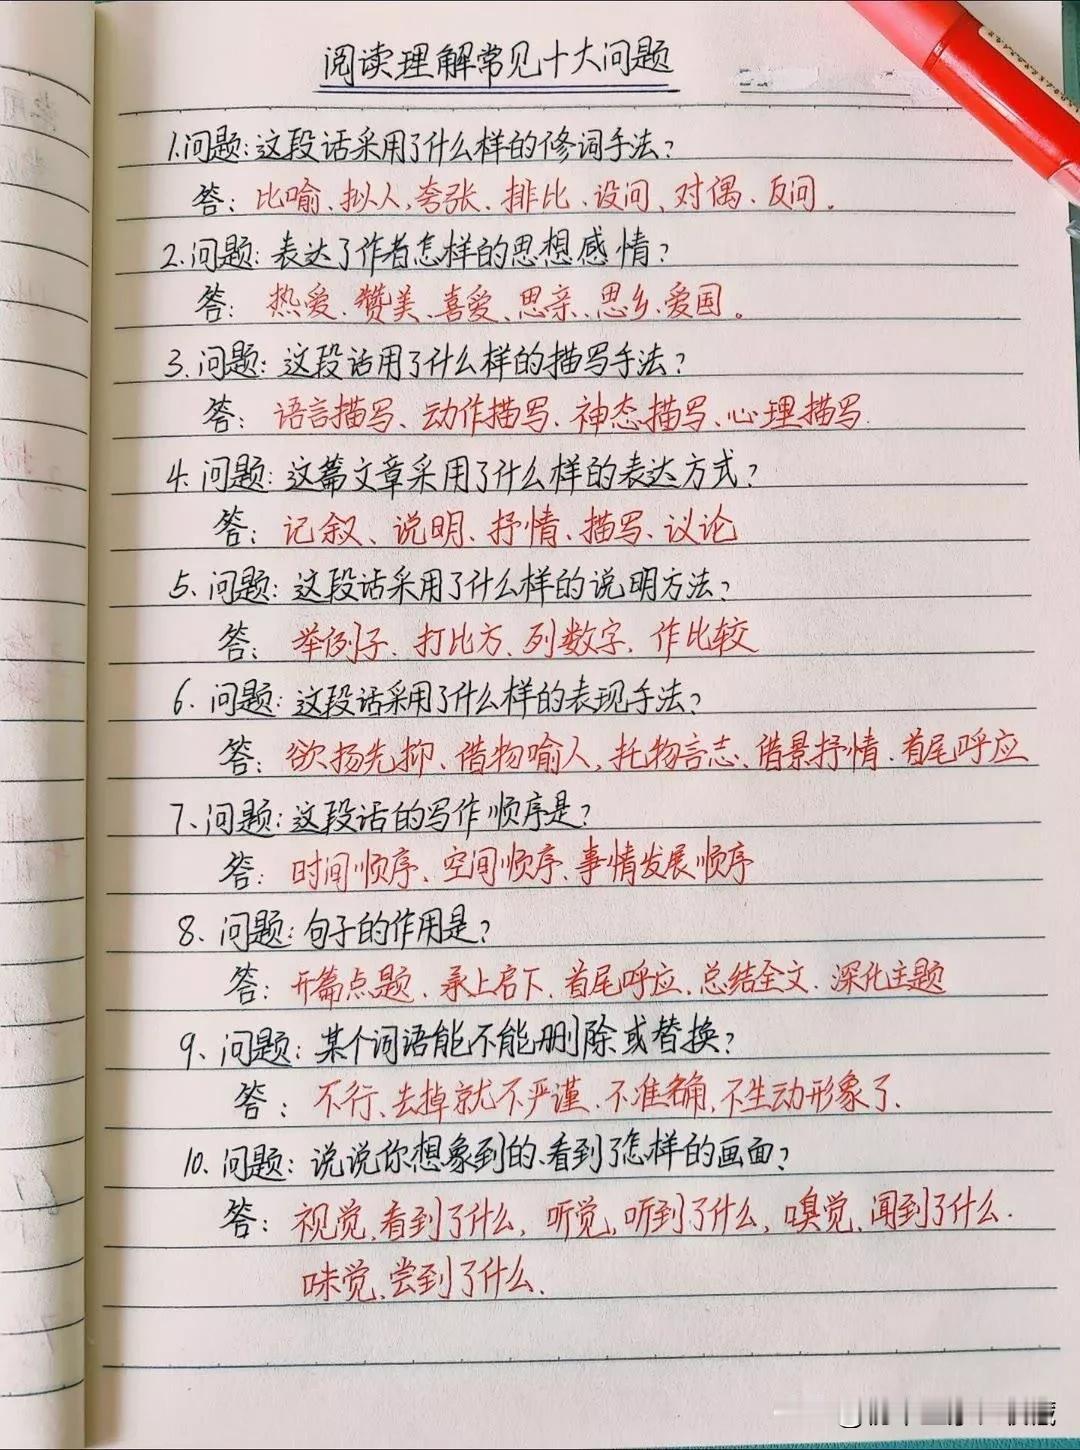 阅读理解常见十大问题
1.问题:这段话采用了什么样的修词手法?
答:比喻、拟人,夸张、排比、设问、对偶、反问。
2.问题:表达了作者怎样的思想感情?
答:热爱、赞美、喜爱、思亲、思乡、爱国。
3.问题:这段话用了什么样的描写手法?
答:语言描写、动作描写、神态描写、心理描写.
4.问题:这篇文章采用了什么样的表达方式?
答:记叙、说明、抒情、描写、议论
5.问题:这段话采用了什么样的说明方法?
答:举例子、打比方、列数字、作比较
6.问题:这段话采用了什么样的表现手法?
答:欲扬先抑、借物喻人,托物言志、借景抒情、首尾呼应
7.问题:这段话的写作顺序是?
答:时间顺序、空间顺序、事情发展顺序
8.问题:句子的作用是?
答:开篇点题、承上启下、首尾呼应、总结全文、深化主题
9、问题:某个词语能不能删除或替换?
答:不行、去掉就不严谨、不准确,不生动形象了.
10.问题:说说你想象到的、看到了怎样的画面?
答:视觉,看到了什么,听觉,听到了什么,嗅觉,闻到了什么.
味觉、尝到了什么.